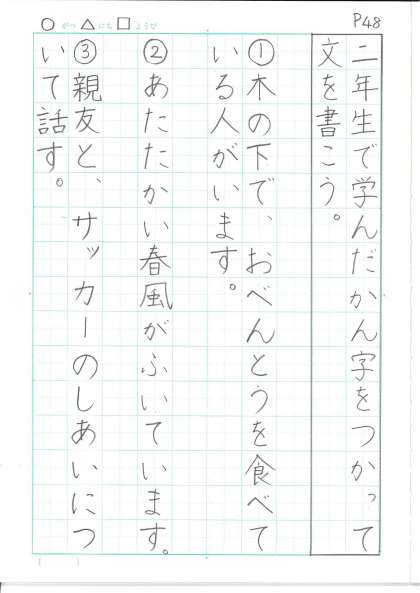 P48
○がつ△にち□ようび
二年生で学んだかん字をつかって
文を書こう。
①木の下で、おべんとうを食べて
いる人がいます。
②あたたかい春風がふいています。
③親友と、サッカーのしあいにつ
いて話す。
(　　)